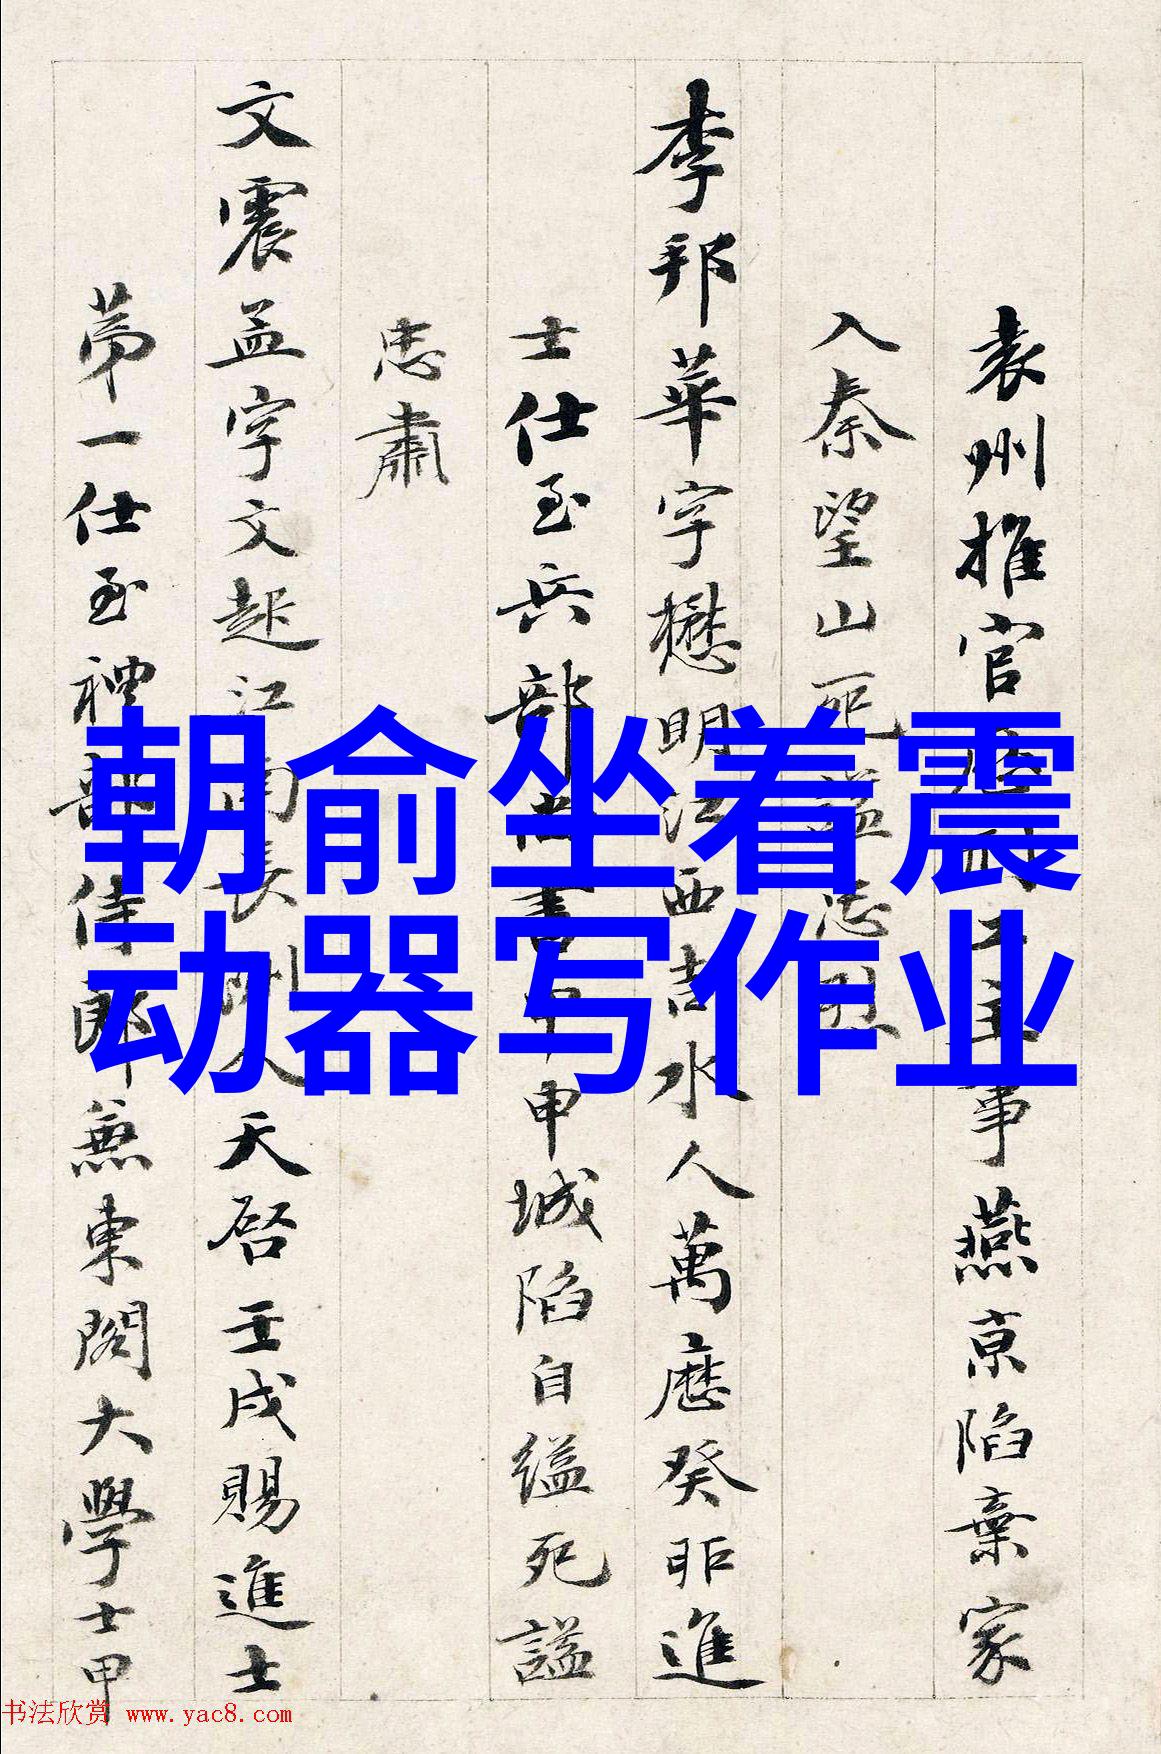 袁州推官 事燕京陷棄家
入秦望山死謚忠烈
李邦華字懋明江西吉水人萬曆癸卯進
士仕至兵部尚書甲申城陷自縊死謚
忠肅
文震孟字文起江南長洲人天啓壬戌賜進士
第一仕至禮部侍郎兼東閣大學士甲
朝俞坐着震
动器写作业
书法欣赏 www.yac8.com